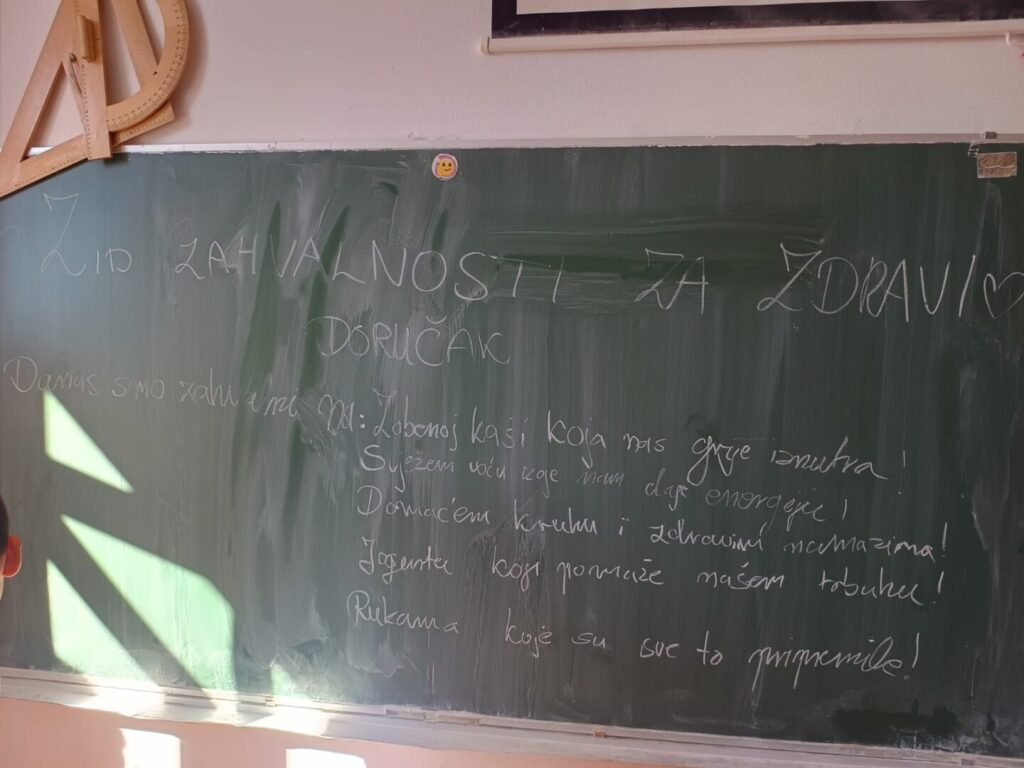 ZID ZAHVALNOSTI ZA ZDRAVI
DORUČAK
Danas smo zahvalni na: Zobenoj kaši koja nas grije iznutra!
Svježem voću koje nam daje energiju!
Domaćem kruhu i zdravim namazima!
Jogurtu koji pomaže našem trbuhu!
Rukama koje su sve to pripremile!